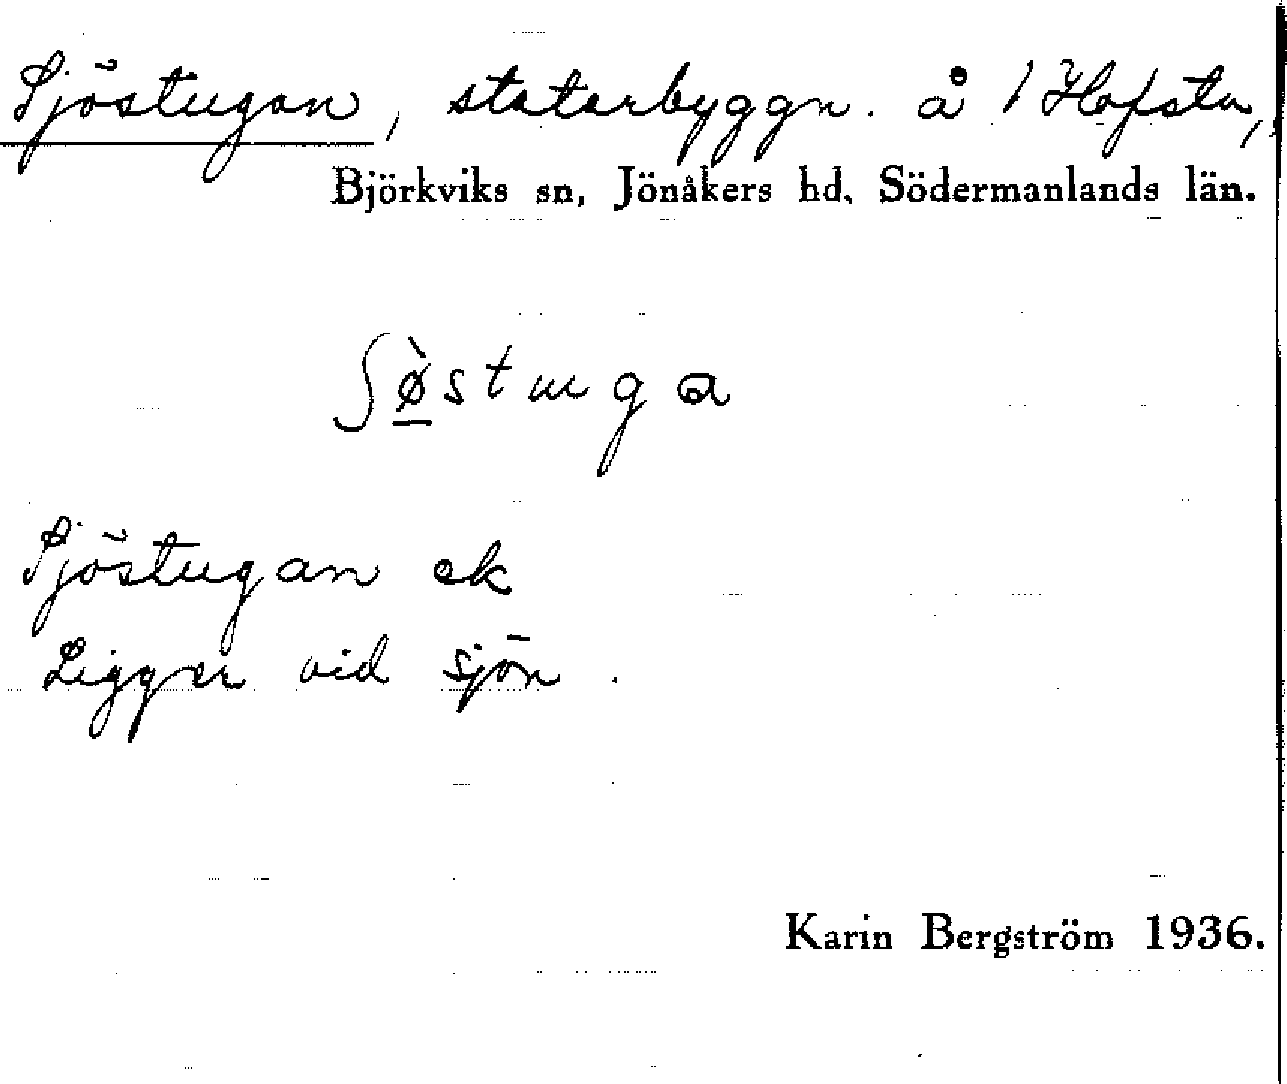 Sjöstugan, statarbyggn. å 1 Hofsta,
Björkviks sn, Jönåkers hd, Södermanlands län.
ʃø̀stɯga
Sjöstugan ek
Ligger vid sjön.
Karin Bergström 1936.